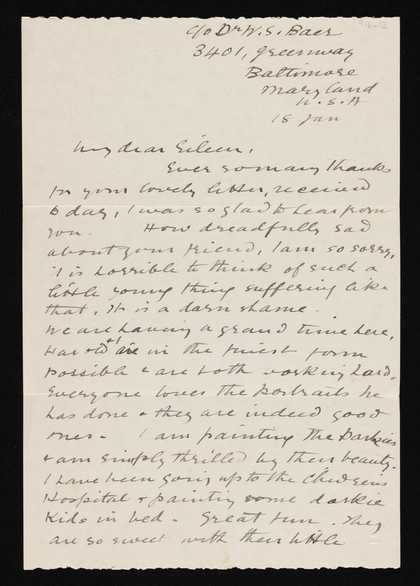 c/o Dr W. S. Baer
3401, Greenway
Baltimore
Maryland
U.S.A
18 Jan
My dear Eileen,
Ever so many thanks
for your lovely letter, received
to day, I was so glad to hear from
you. How dreadfully sad
about your friend, I am so sorry,
it is horrible to think of such a
little young thing suffering like
that, it is a darn shame.
We are having a grand time here,
Harold & I are in the finest form
possible & are both working hard.
Everyone loves the portraits he
has done & they are indeed good
ones - I am painting the Darkies
& am simply thrilled by their beauty.
I have been going up to the Children's
Hospital & painting some darkie
kids in bed - Great fun. They
are so sweet with their little